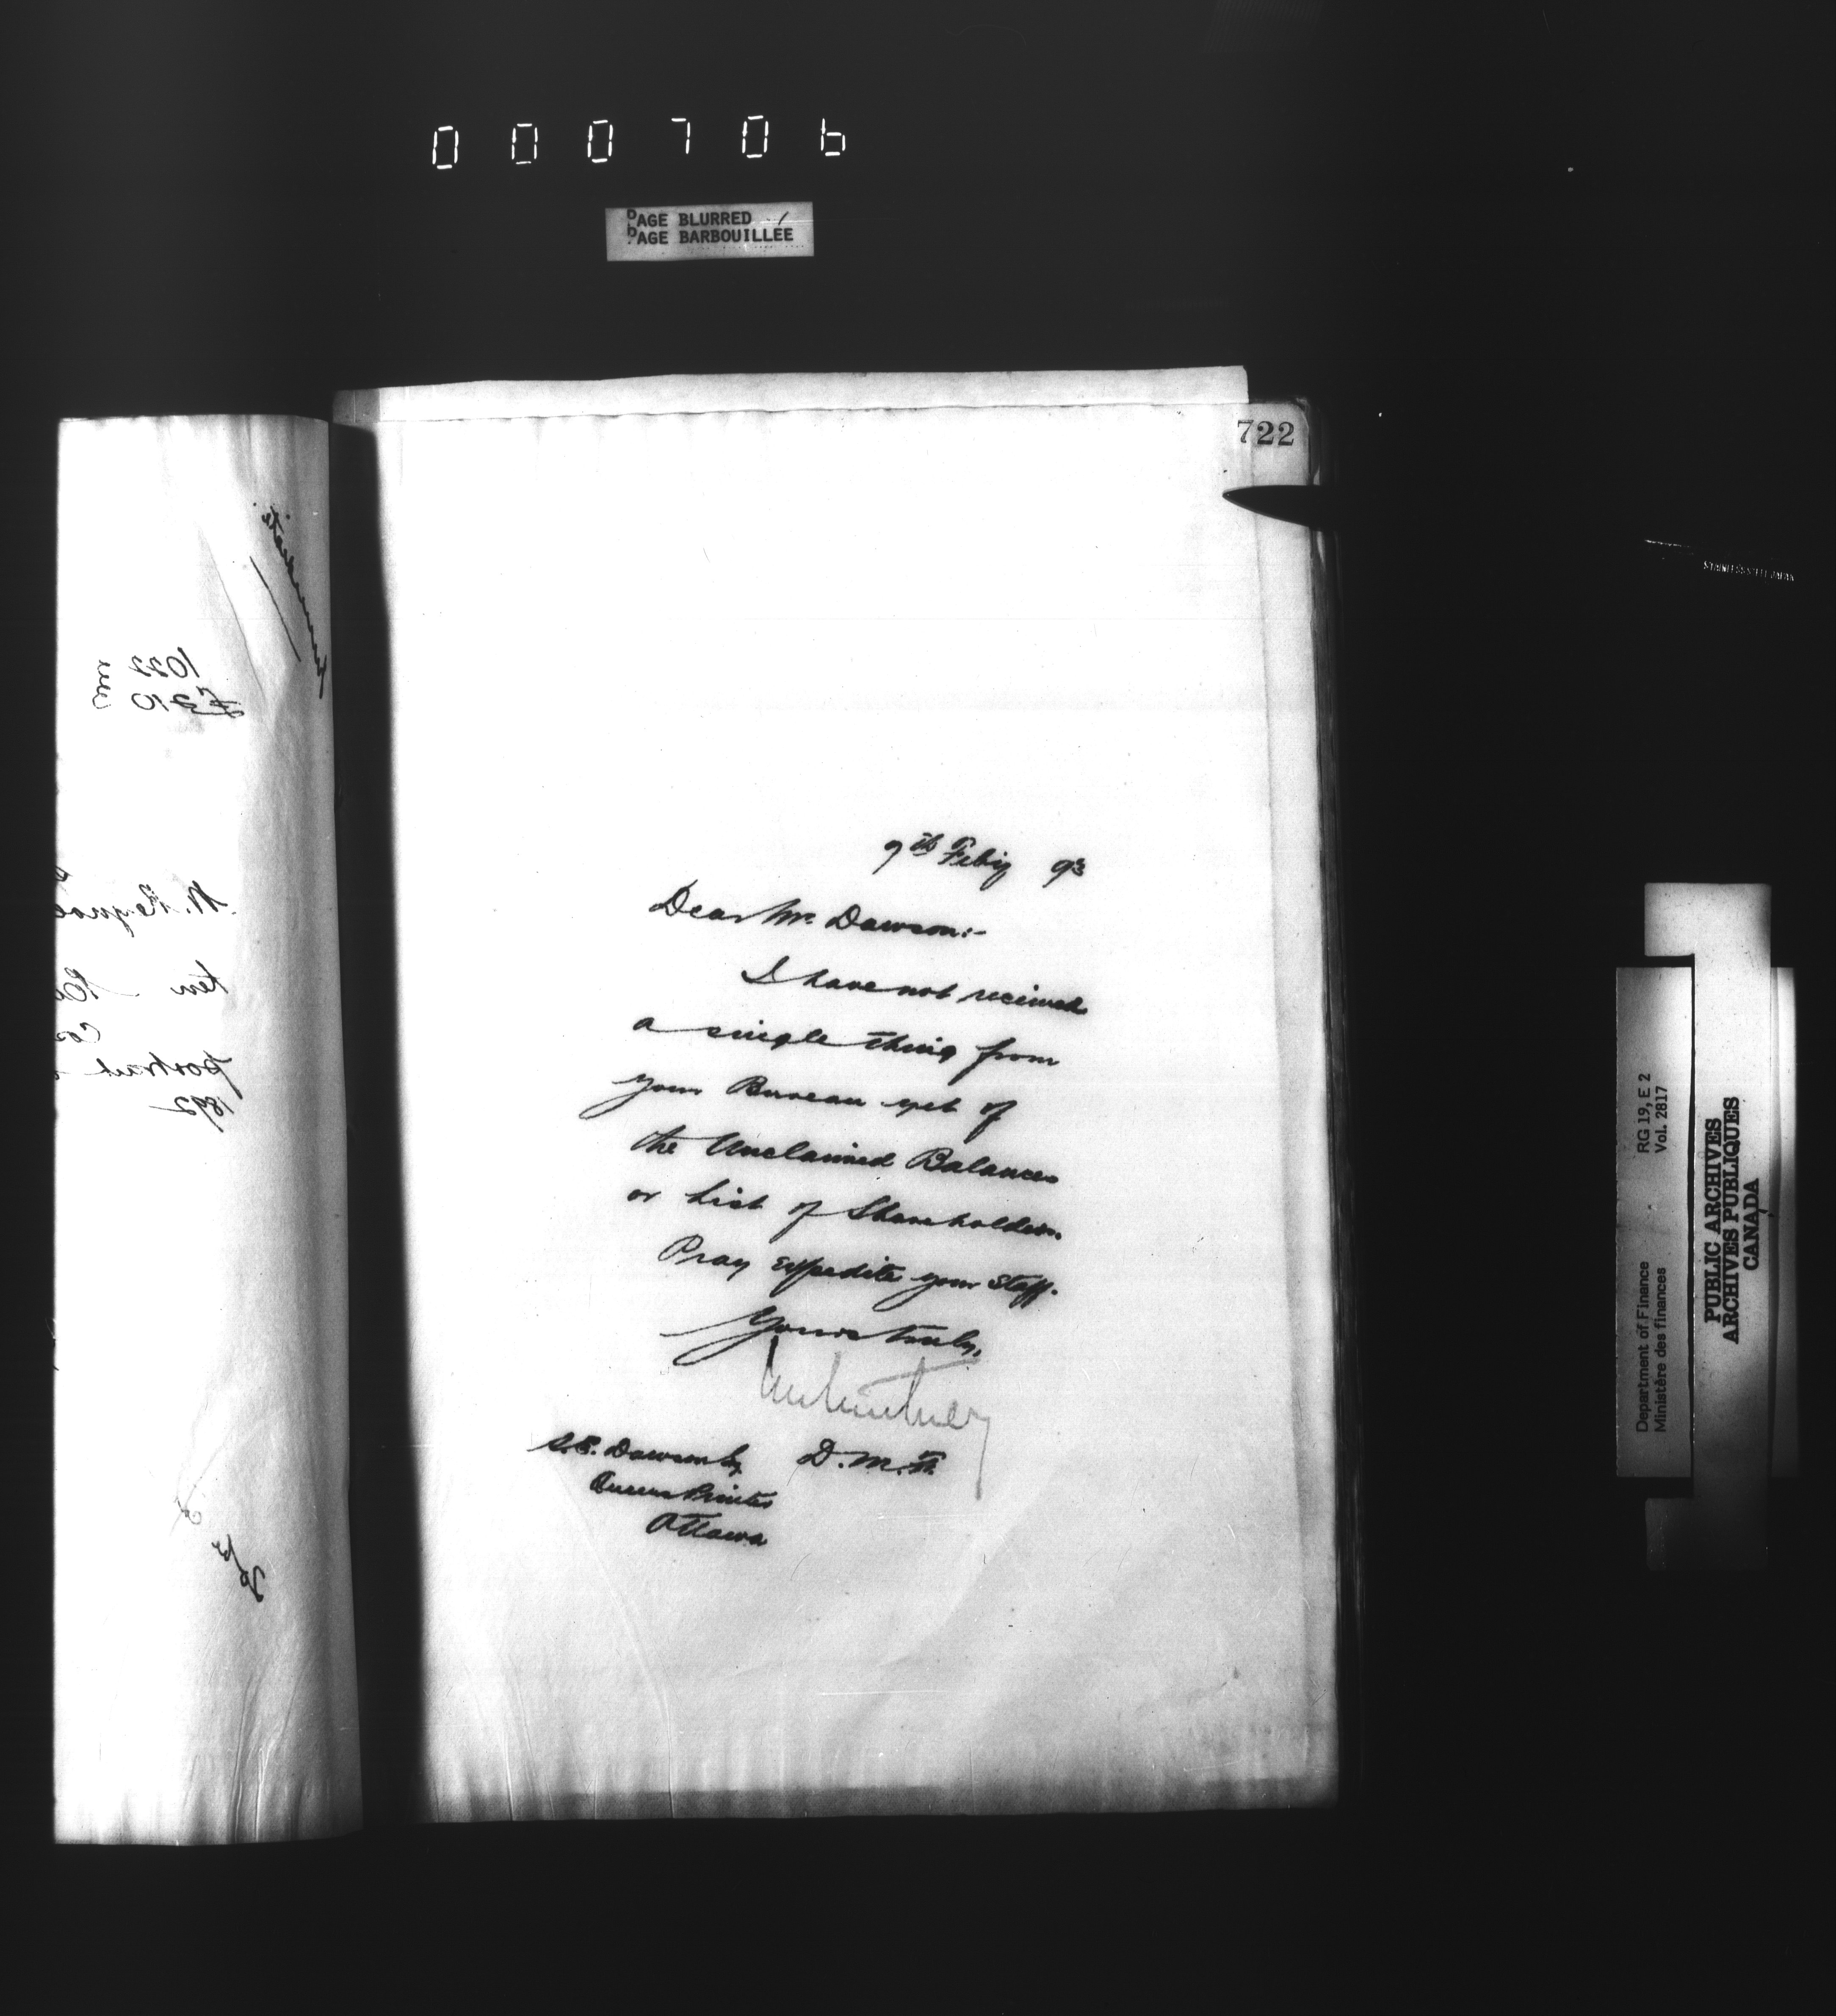 000706
PAGE BLURRED
PAGE BARBOUILLÉE
722
9th Feb'y 93
Dear Mr. Dawson:-
I have not received
a single thing from
your Bureau yet of
the Unclaimed Balances
or List of Shareholders.
Pray expedite your Staff.
Yours truly,
D.M.F.
S.E. Dawson Esq
Queens Printer
Ottawa
1892
STAINLESS STEEL JAPAN
Department of Finance RG 19, E 2
Ministère des finances Vol. 2817
PUBLIC ARCHIVES
ARCHIVES PUBLIQUES
CANADA